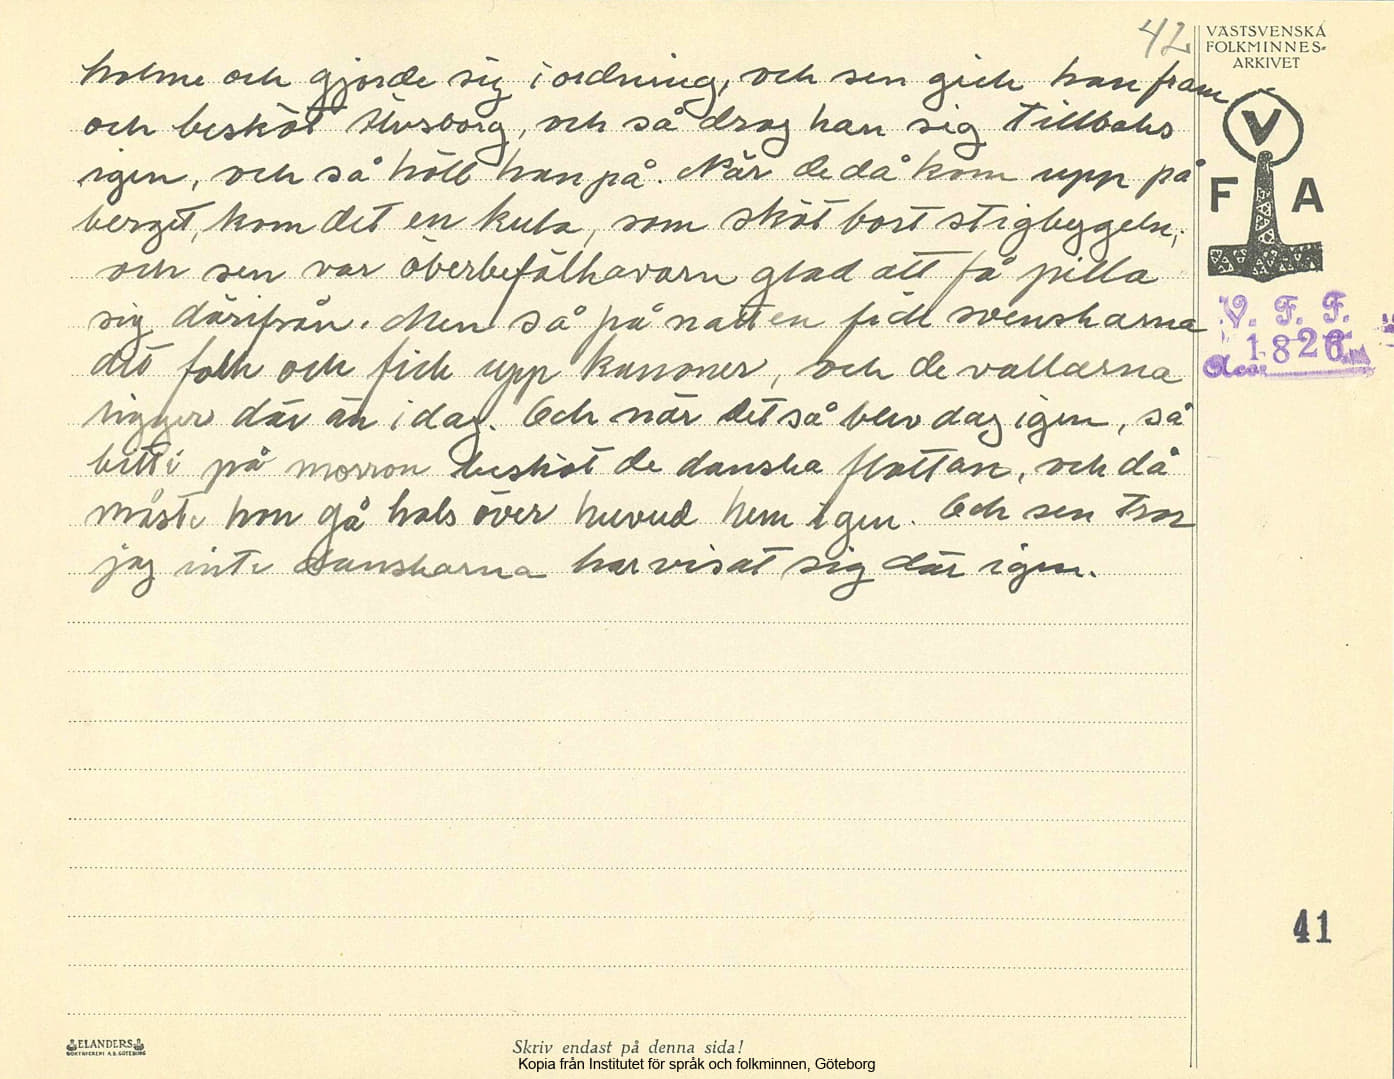 42
VÄSTSVENSKA
FOLKMINNES-
ARKIVET
V
F A
V. F. F.
1826
Acc:
holme och gjorde sig i ordning, och sen gick han fram
och besköt Älvsborg, och så drog han sig tillbaks
igen, och så höll han på. När de då kom upp på
berget, kom det en kula, som sköt bort stigbygeln,
och sen var överbefälhavarn glad att få pilla
sig därifrån. Men så på natten fick svenskarna
dit folk och fick upp kanoner, och de vallarna
ligger där än i dag. Och när det så blev dag igen, så
bitti på morron besköt de danska flottan, och då
måste hon gå hals över huvud hem igen. Och sen tror
jag inte danskarna har visat sig där igen.
41
ELANDERS
BOKTRYCKERI A.B. GÖTEBORG
Skriv endast på denna sida!
Kopia från Institutet för språk och folkminnen, Göteborg